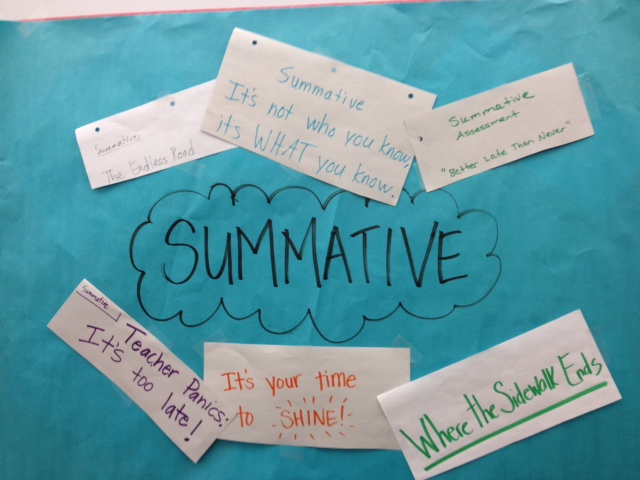 Summative
The Endless Road
Summative
It's not who you know,
its WHAT you know.
Summative
Assessment
"Better Late Than Never"
SUMMATIVE
Summative
Teacher Panics:
It's too
late!
It's your time
to SHINE!
Where the Sidewalk Ends